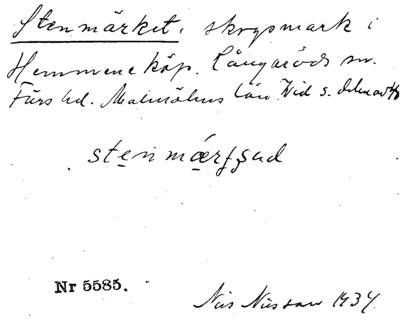 Stenmärket, skogsmark i
Hemmeneköp. Långaröds sn.
Färs hd. Malmöhus län. Vid s. delen av
stenmærkəd
Nr 5585.
Nils Nilsson 1934.